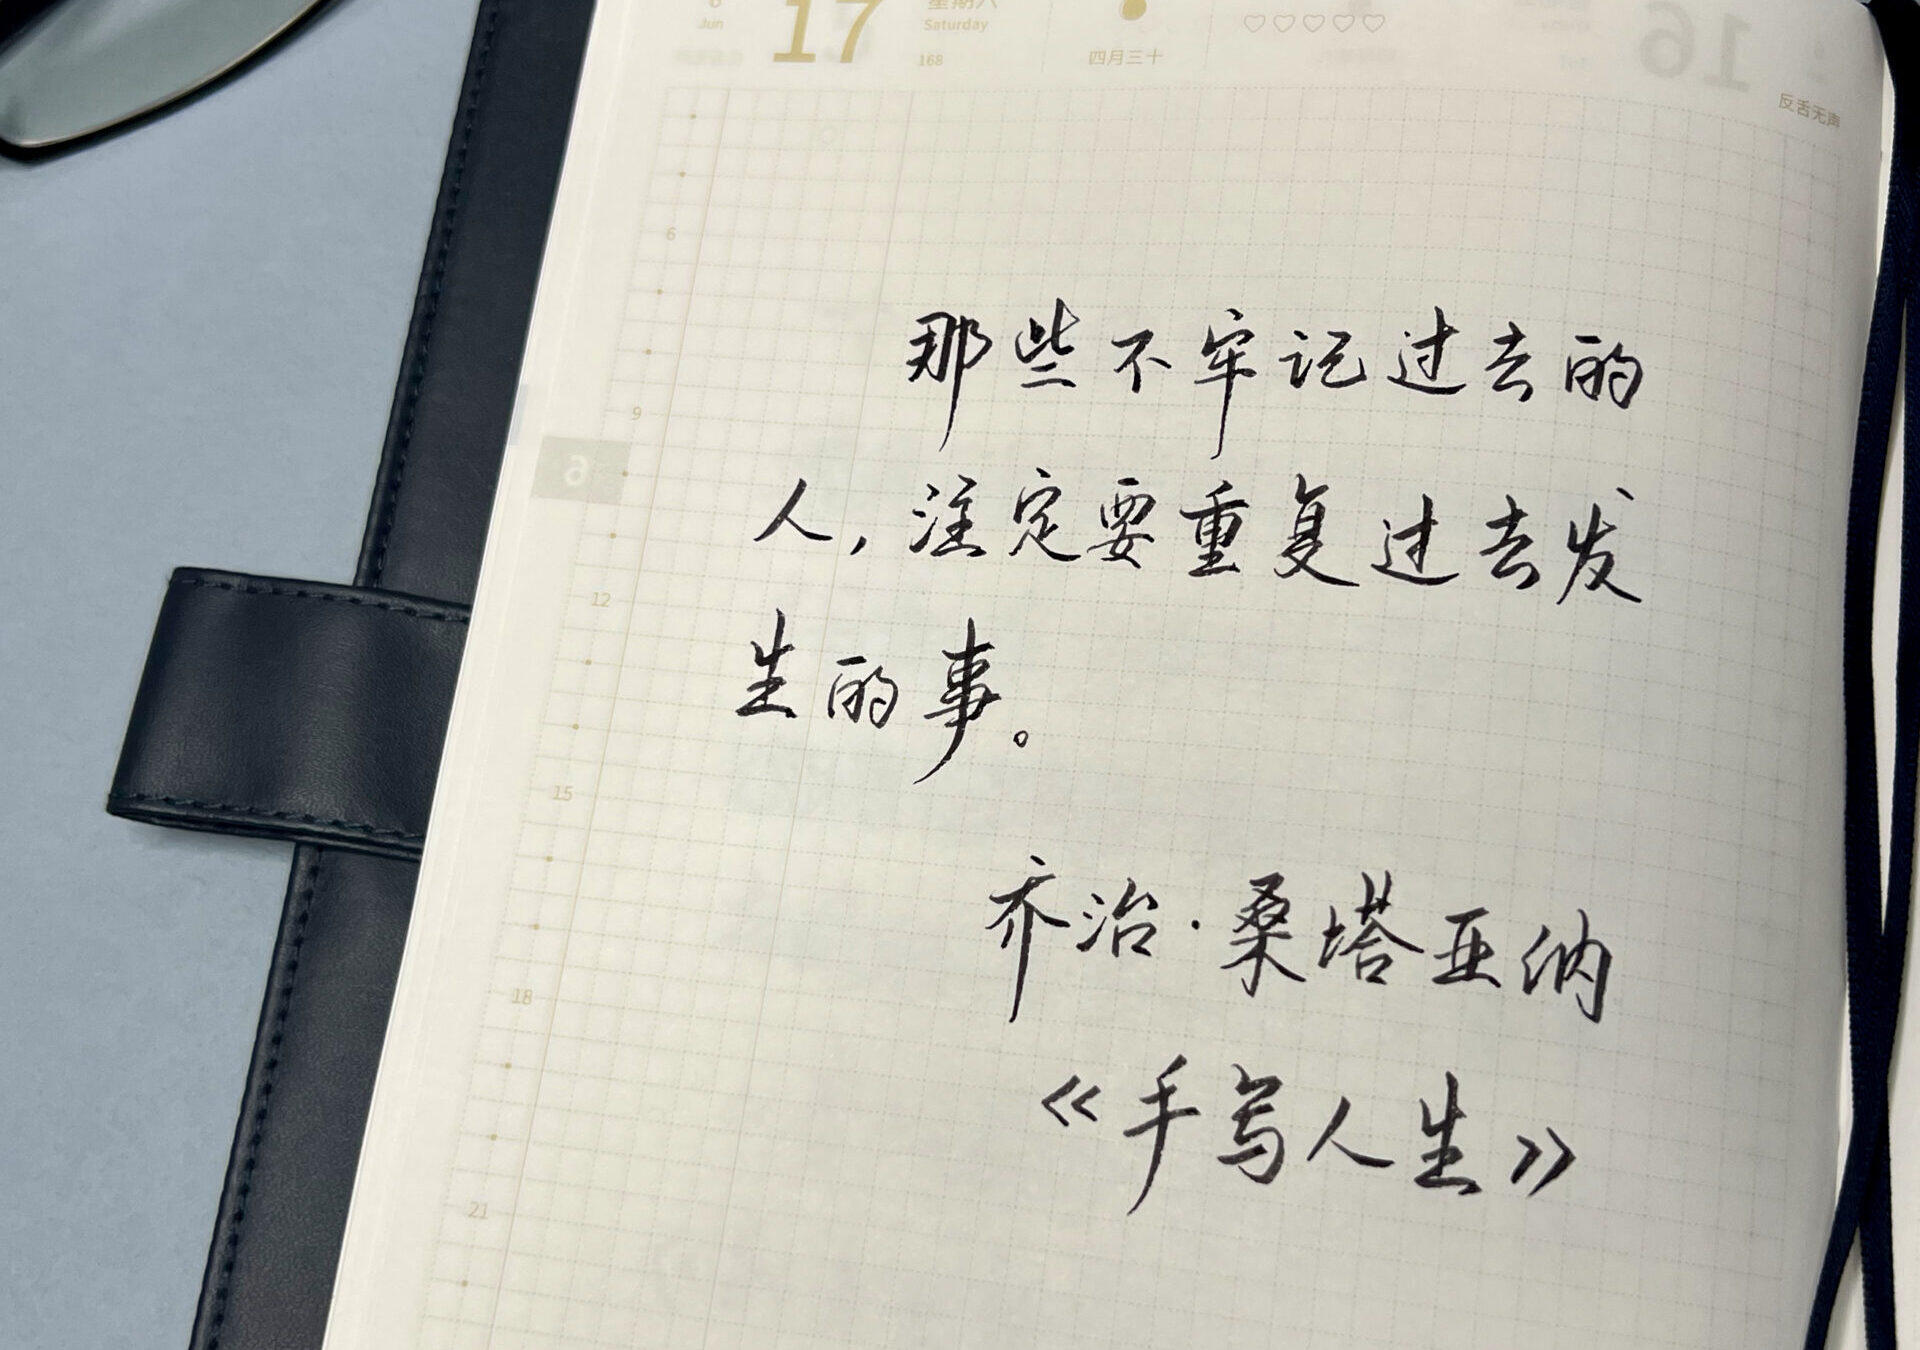 6
Jun
17
星期六
Saturday
168
四月三十
16
反舌无声
6
那些不牢记过去的
9
6
人,注定要重复过去发
12
生的事。
15
乔治·桑塔亚纳
18
《手写人生》
21